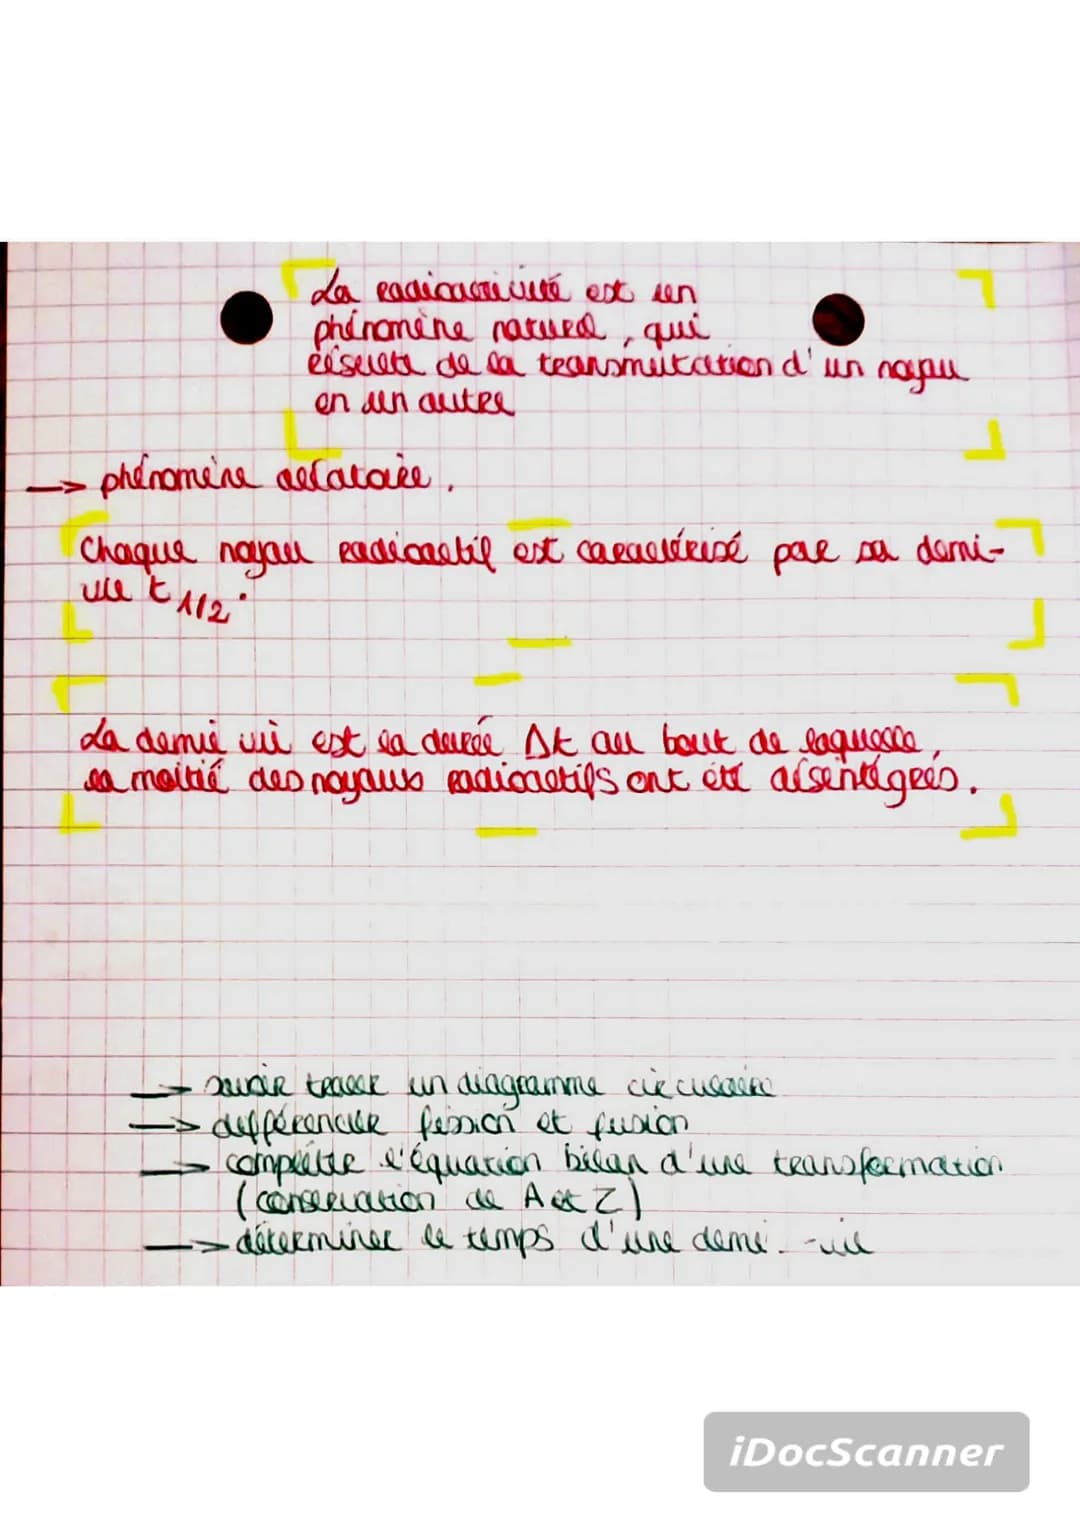 La radioactivité est un
phénomène naturel, qui
résulte de la transmutation d'un noyau
en un autre
→ phénomène aléatoire.
Chaque noyau radioactif est caractérisé par sa demi-
vie t 1/2.
La demie vie est la durée Δt au bout de laquelle,
la moitié des noyaux radioactifs ont été désintégrés.
→ savoir tracer un diagramme circulaire
→ différencier fission et fusion
→ compléter l'équation bilan d'une transformation
(conservation de A et Z)
→ déterminer le temps d'une demi-vie
iDocScanner